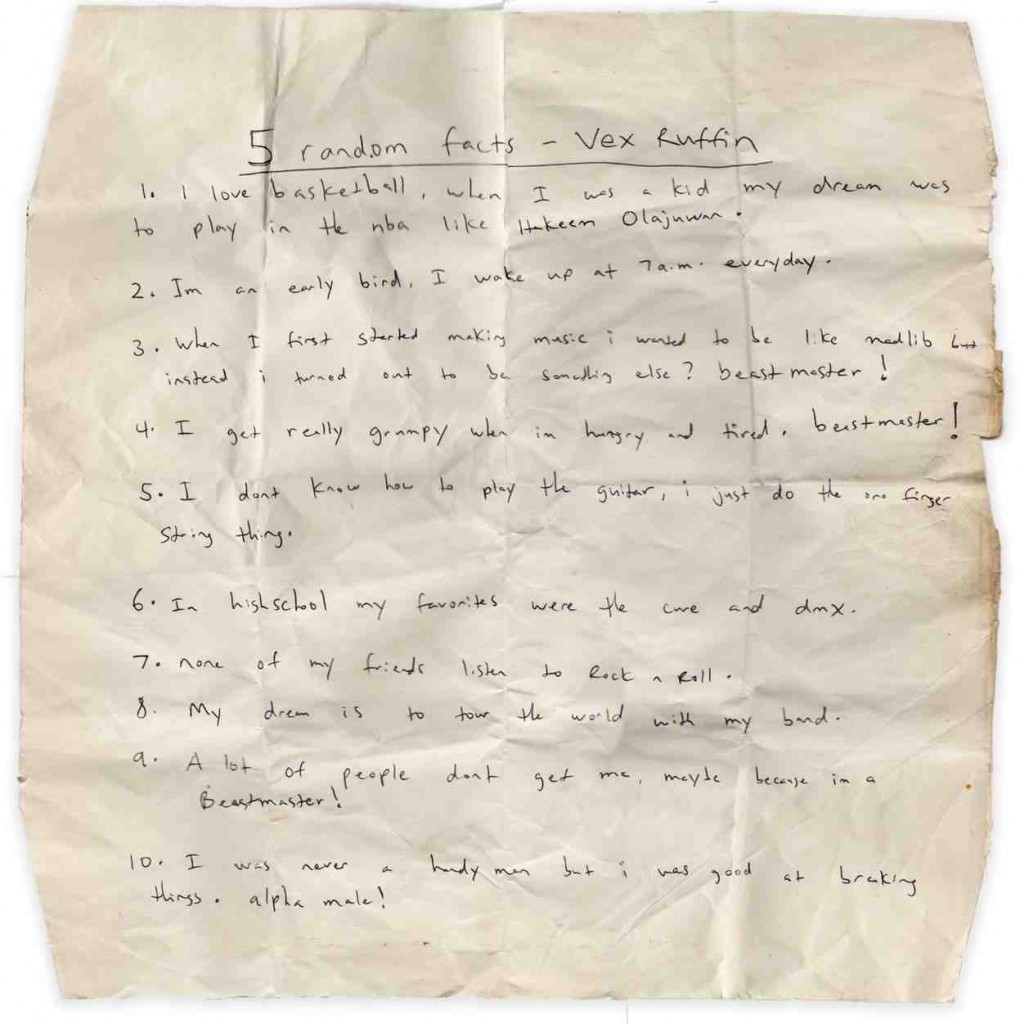 5 random facts - Vex Ruffin
1. I love basketball, when I was a kid my dream was
to play in the nba like Hakeem Olajuwan.
2. Im an early bird, I wake up at 7a.m. everyday.
3. When I first started making music i wanted to be like madlib but
instead i turned out to be something else? beastmaster!
4. I get really grumpy when im hungry and tired, beastmaster!
5. I dont know how to play the guitar, i just do the one finger
string thing.
6. In highschool my favorites were the cure and dmx.
7. none of my friends listen to Rock n Roll.
8. My dream is to tour the world with my band.
9. A lot of people dont get me, maybe because im a
Beastmaster!
10. I was never a handy man but i was good at breaking
things. alpha male!